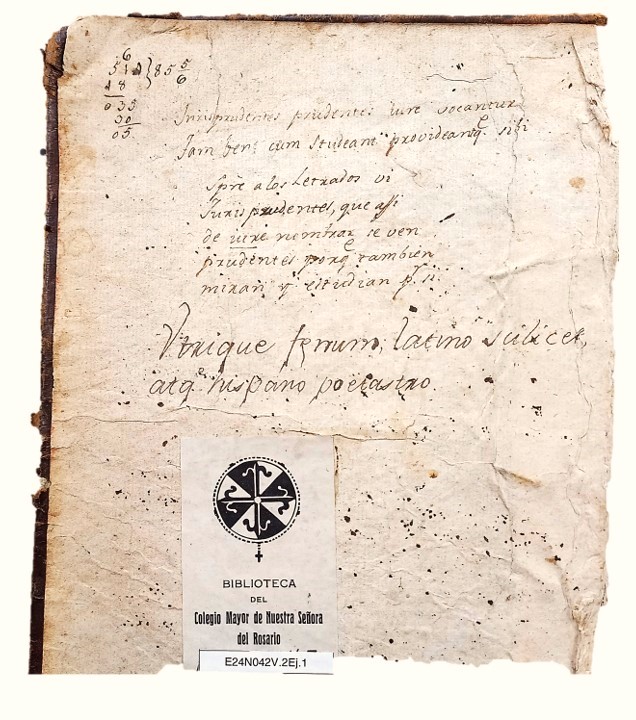 6
510 } 85 5/6
48
035
30
05
Jurisprudentes prudentes iure vocantur
Jam cum studeant provideantq̃ sibi
Spre a los Letrados vi
Jurisprudentes, que assi
de iure nombrar se ven
prudentes porq̃ tambien
miran y estudian pr si
Vtrique ferrum, latino scilicet,
atq̃ hispano poetastro.
BIBLIOTECA
DEL
Colegio Mayor de Nuestra Señora
del Rosario
E24N042V.2Ej.1